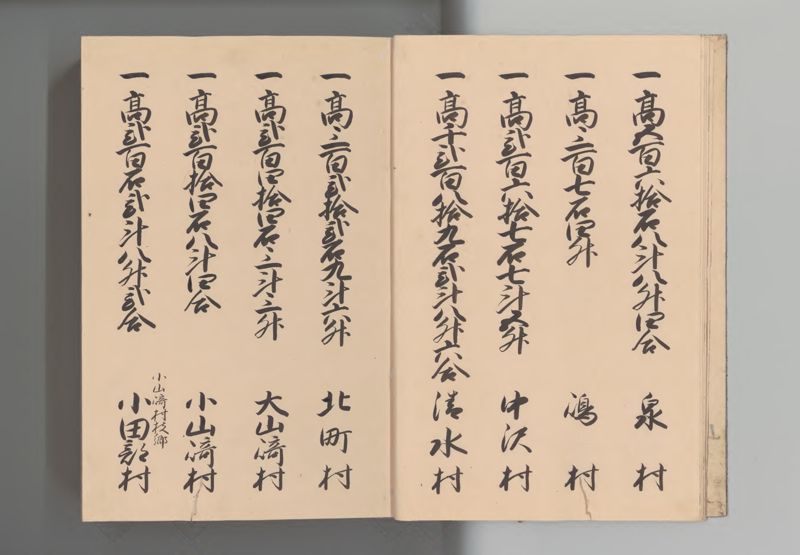 一高六百六拾石八斗八升四合 泉村
一高三百七石四升 嶋村
一高弐百六拾七石七斗五升 中沢村
一高千弐百八拾九石弐斗八升六合 清水村
一高三百弐拾弐石九斗六升 北町村
一高弐百四拾四石三斗三升 大山﨑村
一高弐百拾四石八斗四合 小山﨑村
小山﨑村枝郷
一高弐百石弐斗八升弐合 小田部村